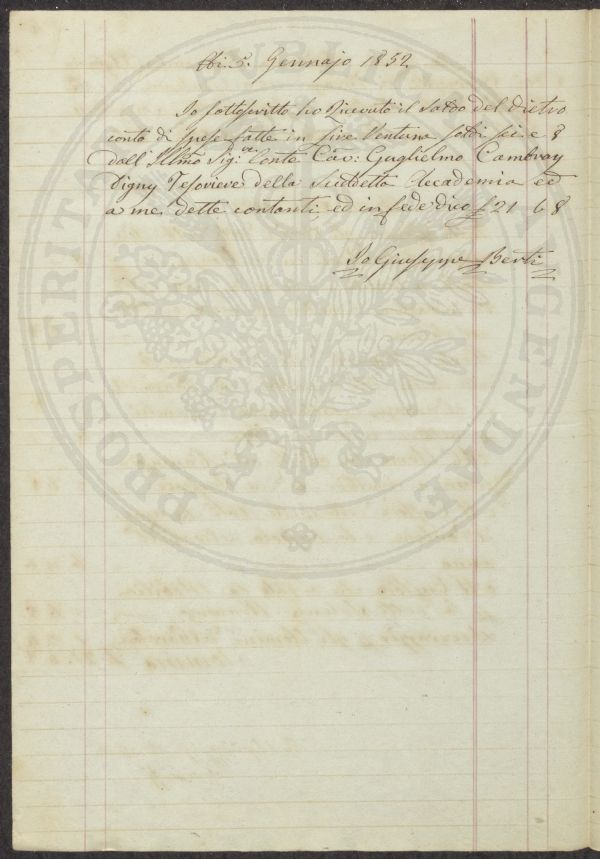 Ai 5. Gennajo 1852
Io sottoscritto ho Ricevuto il saldo del dietro
conto di spese fatte in lire ventuna soldi sei e 8
dall Illmo Sig.re Conte Cav: Guglielmo Cambray
Digny Tesoriere della Suddetta Accademia ed
a me dette contanti, ed in fede dico £ 21 6 8
Io Giuseppe Berti
PROSPERITATI PUBLICAE AUGENDAE